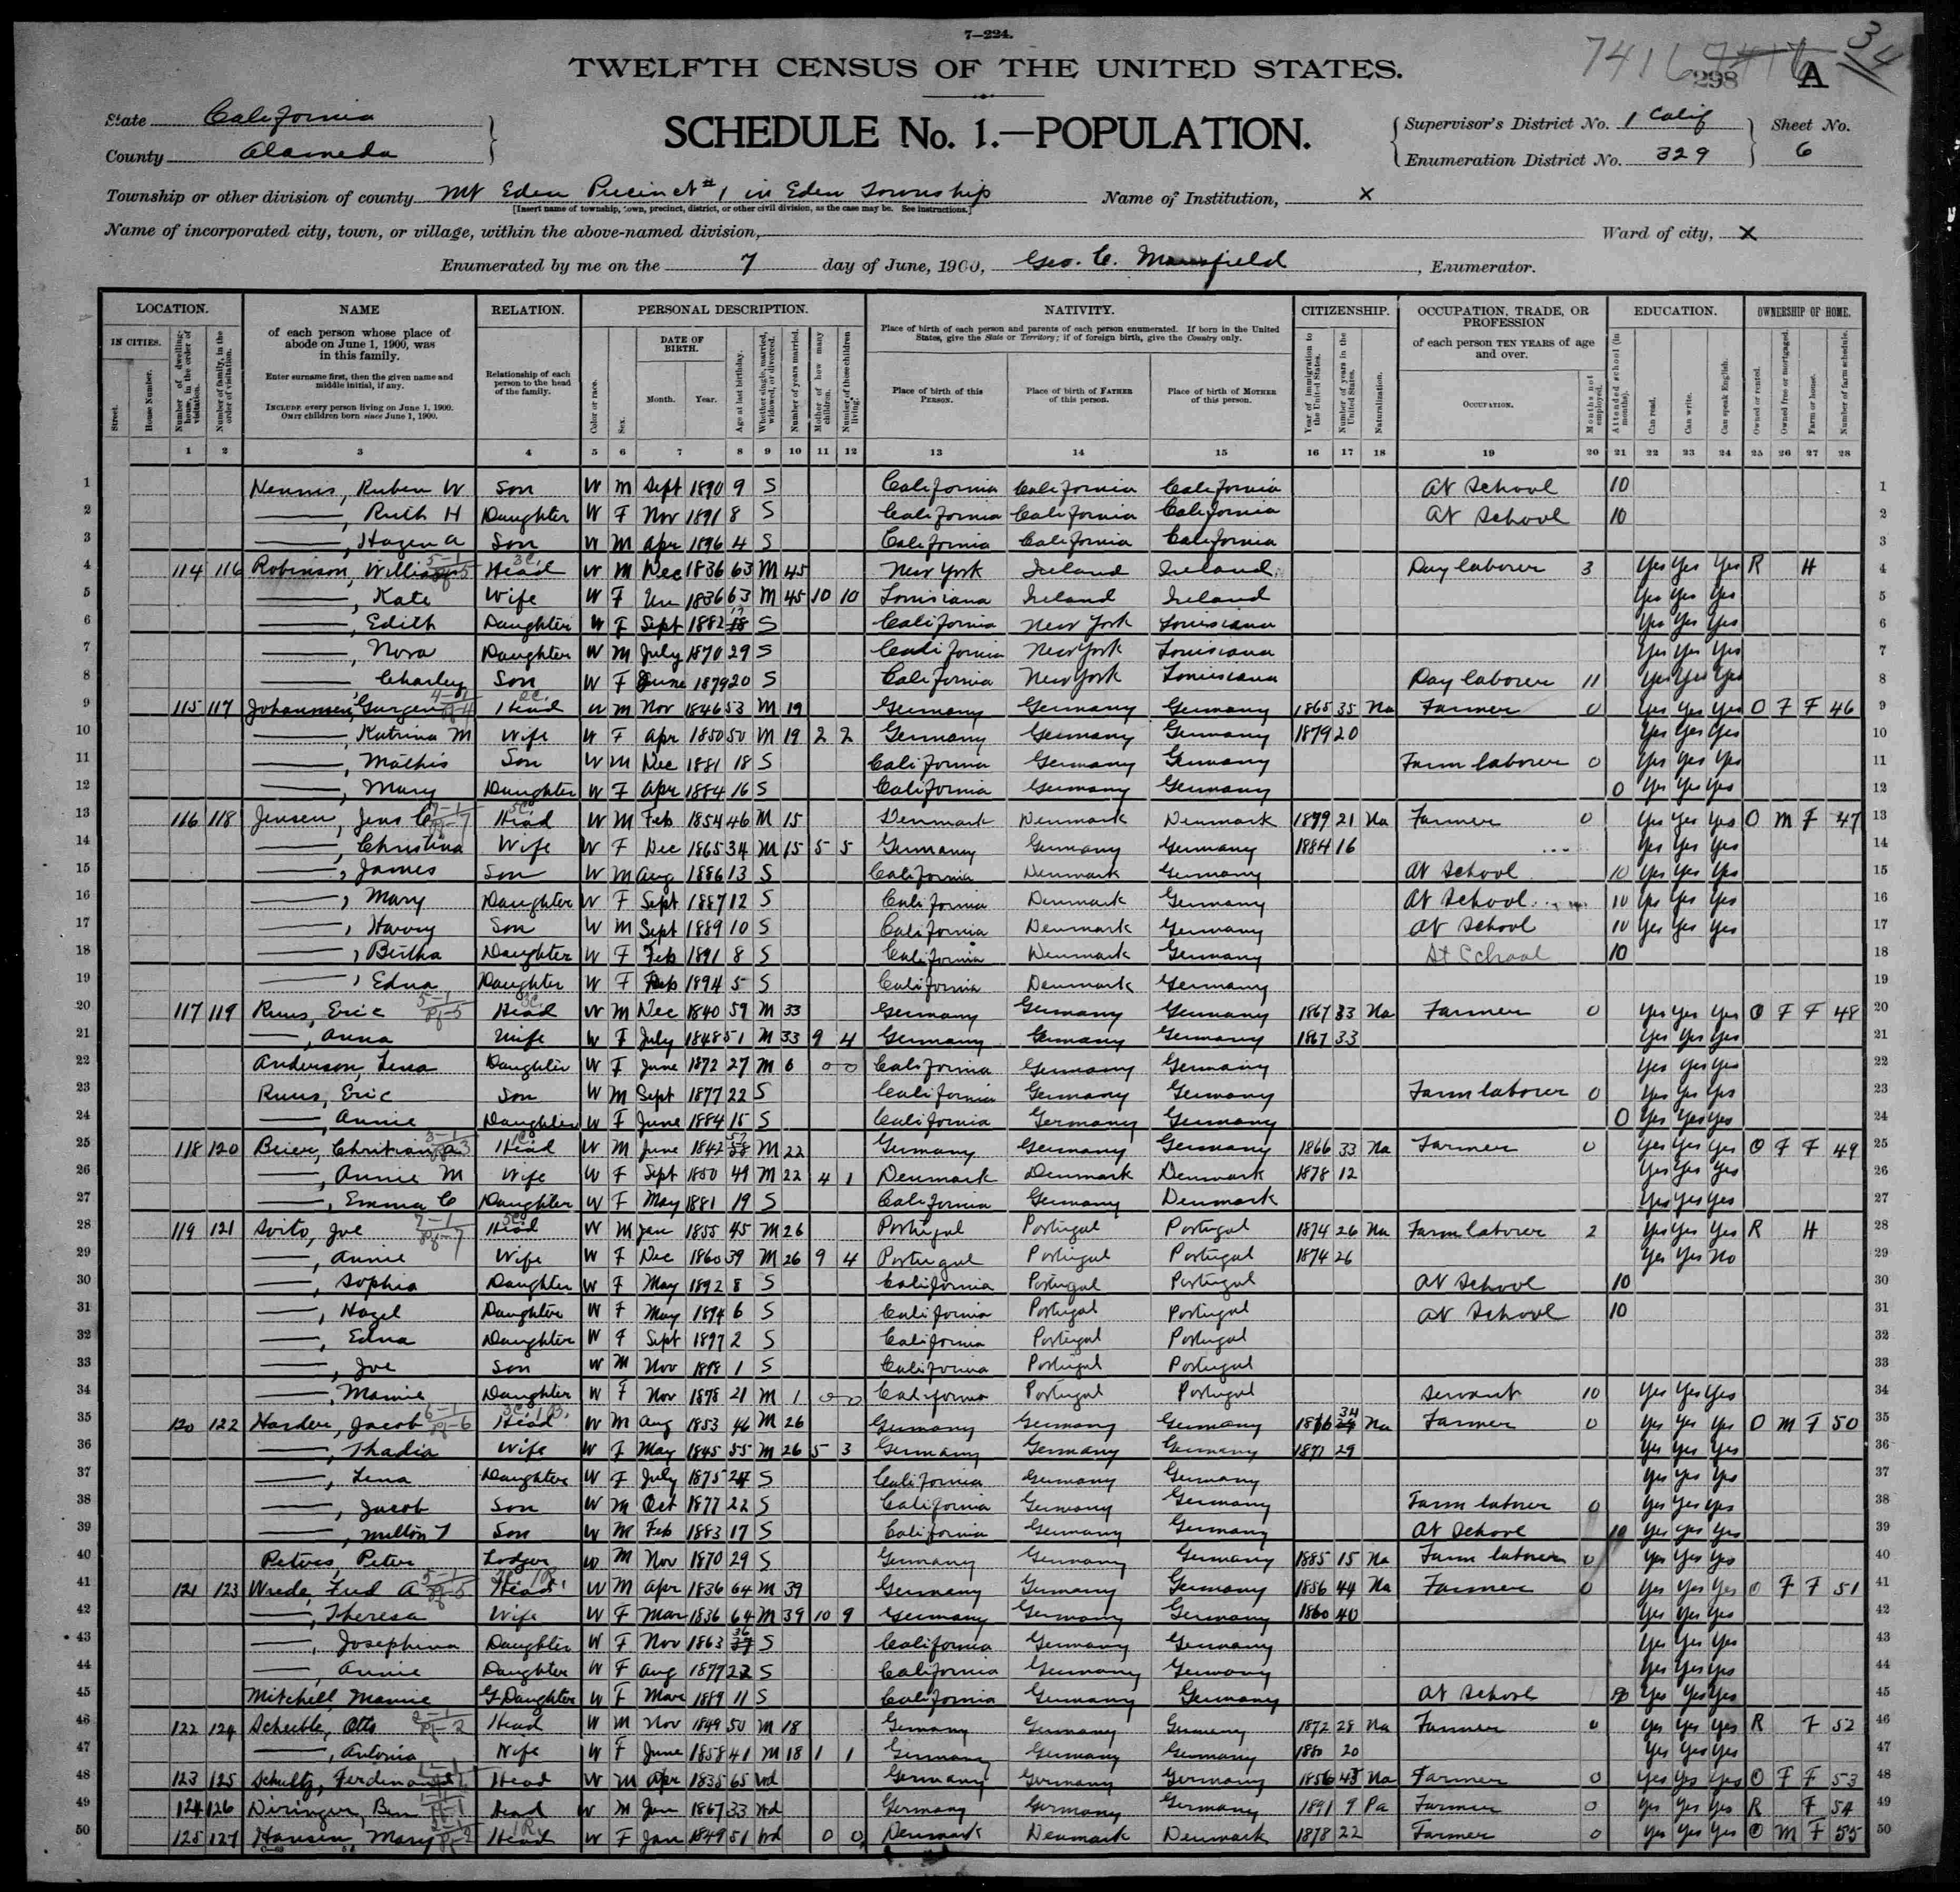 7—224.
7416 7416 34
298 A
TWELFTH CENSUS OF THE UNITED STATES.
SCHEDULE No. 1.—POPULATION.
State California
County Alameda
Supervisor's District No. 1 Calif
Enumeration District No. 329
Sheet No. 6
Township or other division of county Mt Eden Precinct #1 in Eden Township
[Insert name of township, town, precinct, district, or other civil division, as the case may be. See instructions.]
Name of Institution, X
Name of incorporated city, town, or village, within the above-named division,
Ward of city, X
Enumerated by me on the 7 day of June, 1900, Geo. C. Mansfield, Enumerator.
LOCATION. NAME RELATION. PERSONAL DESCRIPTION. NATIVITY. CITIZENSHIP. OCCUPATION, TRADE, OR PROFESSION EDUCATION. OWNERSHIP OF HOME.
IN CITIES. Street. House Number. Number of dwelling-house, in the order of visitation. Number of family, in the order of visitation.
of each person whose place of abode on June 1, 1900, was in this family.
Enter surname first, then the given name and middle initial, if any.
INCLUDE every person living on June 1, 1900. OMIT children born since June 1, 1900.
Relationship of each person to the head of the family.
Color or race. Sex. DATE OF BIRTH. Month. Year. Age at last birthday. Whether single, married, widowed, or divorced. Number of years married. Mother of how many children. Number of these children living.
Place of birth of each person and parents of each person enumerated. If born in the United States, give the State or Territory; if of foreign birth, give the Country only.
Place of birth of this PERSON. Place of birth of FATHER of this person. Place of birth of MOTHER of this person.
Year of immigration to the United States. Number of years in the United States. Naturalization.
of each person TEN YEARS of age and over.
OCCUPATION. Months not employed.
Attended school (in months). Can read. Can write. Can speak English.
Owned or rented. Owned free or mortgaged. Farm or house. Number of farm schedule.
1 2 3 4 5 6 7 8 9 10 11 12 13 14 15 16 17 18 19 20 21 22 23 24 25 26 27 28
1 Ruben W Son W M Sept 1890 9 S California California California At School 10 1
2 Ruth H Daughter W F Nov 1891 8 S California California California At School 10 2
3 Hazen A Son W M Apr 1896 4 S California California California 3
4 114 116 Robinson, William Head W M Dec 1836 63 M 45 New York Ireland Ireland Day laborer 3 Yes Yes Yes R H 4
5 Kate Wife W F Un 1836 63 M 45 10 10 Louisiana Ireland Ireland Yes Yes Yes 5
6 Edith Daughter W F Sept 1882 S California New York Louisiana Yes Yes Yes 6
7 Nora Daughter W M July 1870 29 S California New York Louisiana Yes Yes Yes 7
8 Charley Son W F June 1879 20 S California New York Louisiana Day laborer 11 Yes Yes Yes 8
9 115 117 Johannsen, Gurgen Head W M Nov 1846 53 M 19 Germany Germany Germany 1865 35 Na Farmer 0 Yes Yes Yes O F F 46 9
10 Katrina M Wife W F Apr 1850 50 M 19 2 2 Germany Germany Germany 1879 20 Yes Yes Yes 10
11 Mathis Son W M Dec 1881 18 S California Germany Germany Farm laborer 0 Yes Yes Yes 11
12 Mary Daughter W F Apr 1884 16 S California Germany Germany 0 Yes Yes Yes 12
13 116 118 Jensen, Jens C Head W M Feb 1854 46 M 15 Denmark Denmark Denmark 1879 21 Na Farmer 0 Yes Yes Yes O M F 47 13
14 Christina Wife W F Dec 1865 34 M 15 5 5 Germany Germany Germany 1884 16 Yes Yes Yes 14
15 James Son W M Aug 1886 13 S California Denmark Germany At School 10 Yes Yes Yes 15
16 Mary Daughter W F Sept 1887 12 S California Denmark Germany At School 10 Yes Yes Yes 16
17 Harry Son W M Sept 1889 10 S California Denmark Germany At School 10 Yes Yes Yes 17
18 Bertha Daughter W F Feb 1891 8 S California Denmark Germany At School 10 18
19 Edna Daughter W F Feb 1894 5 S California Denmark Germany 19
20 117 119 Ruus, Eric Head W M Dec 1840 59 M 33 Germany Germany Germany 1867 33 Na Farmer 0 Yes Yes Yes O F F 48 20
21 Anna Wife W F July 1848 51 M 33 9 4 Germany Germany Germany 1867 33 Yes Yes Yes 21
22 Anderson, Lena Daughter W F June 1872 27 M 6 0 0 California Germany Germany Yes Yes Yes 22
23 Ruus, Eric Son W M Sept 1877 22 S California Germany Germany Farm laborer 0 Yes Yes Yes 23
24 Annie Daughter W F June 1884 15 S California Germany Germany 0 Yes Yes Yes 24
25 118 120 Beier, Christian Head W M June 1842 M 22 Germany Germany Germany 1866 33 Na Farmer 0 Yes Yes Yes O F F 49 25
26 Annie M Wife W F Sept 1850 49 M 22 4 1 Denmark Denmark Denmark 1878 12 Yes Yes Yes 26
27 Emma C Daughter W F May 1881 19 S California Germany Denmark Yes Yes Yes 27
28 119 121 Soito, Joe Head W M Jan 1855 45 M 26 Portugal Portugal Portugal 1874 26 Na Farm laborer 2 Yes Yes Yes R H 28
29 Annie Wife W F Dec 1860 39 M 26 9 4 Portugal Portugal Portugal 1874 26 Yes Yes No 29
30 Sophia Daughter W F May 1892 8 S California Portugal Portugal At School 10 30
31 Hazel Daughter W F May 1894 6 S California Portugal Portugal At School 10 31
32 Edna Daughter W F Sept 1897 2 S California Portugal Portugal 32
33 Joe Son W M Nov 1898 1 S California Portugal Portugal 33
34 Mamie Daughter W F Nov 1878 21 M 1 0 0 California Portugal Portugal Servant 10 Yes Yes Yes 34
35 120 122 Harder, Jacob Head W M Aug 1853 46 M 26 Germany Germany Germany 1866 34 Na Farmer 0 Yes Yes Yes O M F 50 35
36 Thadia Wife W F May 1845 55 M 26 5 3 Germany Germany Germany 1871 29 Yes Yes Yes 36
37 Lena Daughter W F July 1875 24 S California Germany Germany Yes Yes Yes 37
38 Jacob Son W M Oct 1877 22 S California Germany Germany Farm laborer 0 Yes Yes Yes 38
39 Milton Son W M Feb 1883 17 S California Germany Germany At School 10 Yes Yes Yes 39
40 Peters Peter Lodger W M Nov 1870 29 S Germany Germany Germany 1885 15 Na Farm laborer 0 Yes Yes Yes 40
41 121 123 Wrede, Fred A Head W M Apr 1836 64 M 39 Germany Germany Germany 1856 44 Na Farmer 0 Yes Yes Yes O F F 51 41
42 Theresa Wife W F Mar 1836 64 M 39 10 9 Germany Germany Germany 1860 40 Yes Yes Yes 42
43 Josephina Daughter W F Nov 1863 36 S California Germany Germany Yes Yes Yes 43
44 Annie Daughter W F Aug 1877 22 S California Germany Germany Yes Yes Yes 44
45 Mitchell Mamie G Daughter W F Mar 1889 11 S California Germany Germany At School Yes Yes Yes 45
46 122 124 Scheible, Otto Head W M Nov 1849 50 M 18 Germany Germany Germany 1872 28 Na Farmer 0 Yes Yes Yes R F 52 46
47 Antonia Wife W F June 1858 41 M 18 1 1 Germany Germany Germany 1880 20 Yes Yes Yes 47
48 123 125 Schultz, Ferdinand Head W M Apr 1835 65 Wd Germany Germany Germany 1856 Na Farmer 0 Yes Yes Yes O F F 53 48
49 124 126 Diringer, Ben Head W M Jan 1867 33 Wd Germany Germany Germany 1891 9 Pa Farmer 0 Yes Yes Yes R F 54 49
50 125 127 Hansen, Mary Head W F Jan 1849 51 Wd 0 0 Denmark Denmark Denmark 1878 22 Farmer 0 Yes Yes Yes O M F 55 50